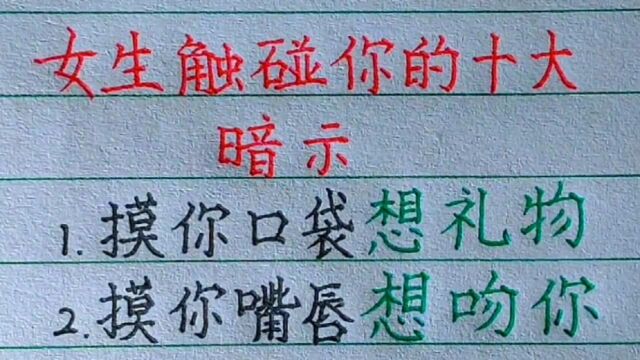 女生触碰你的十大
暗示
1.摸你口袋想礼物
2.摸你嘴唇想吻你